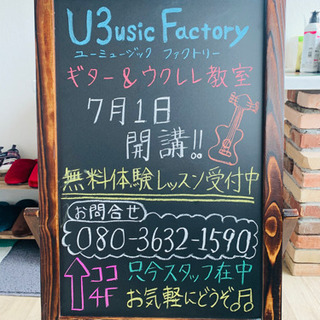 U3usic Factory
ユーミュージック ファクトリー
ギター＆ウクレレ教室
7月1日
開講!!
無料体験レッスン受付中
お問合せ
080-3632-1590
↑ココ 只今スタッフ在中
4F お気軽にどうぞ♫